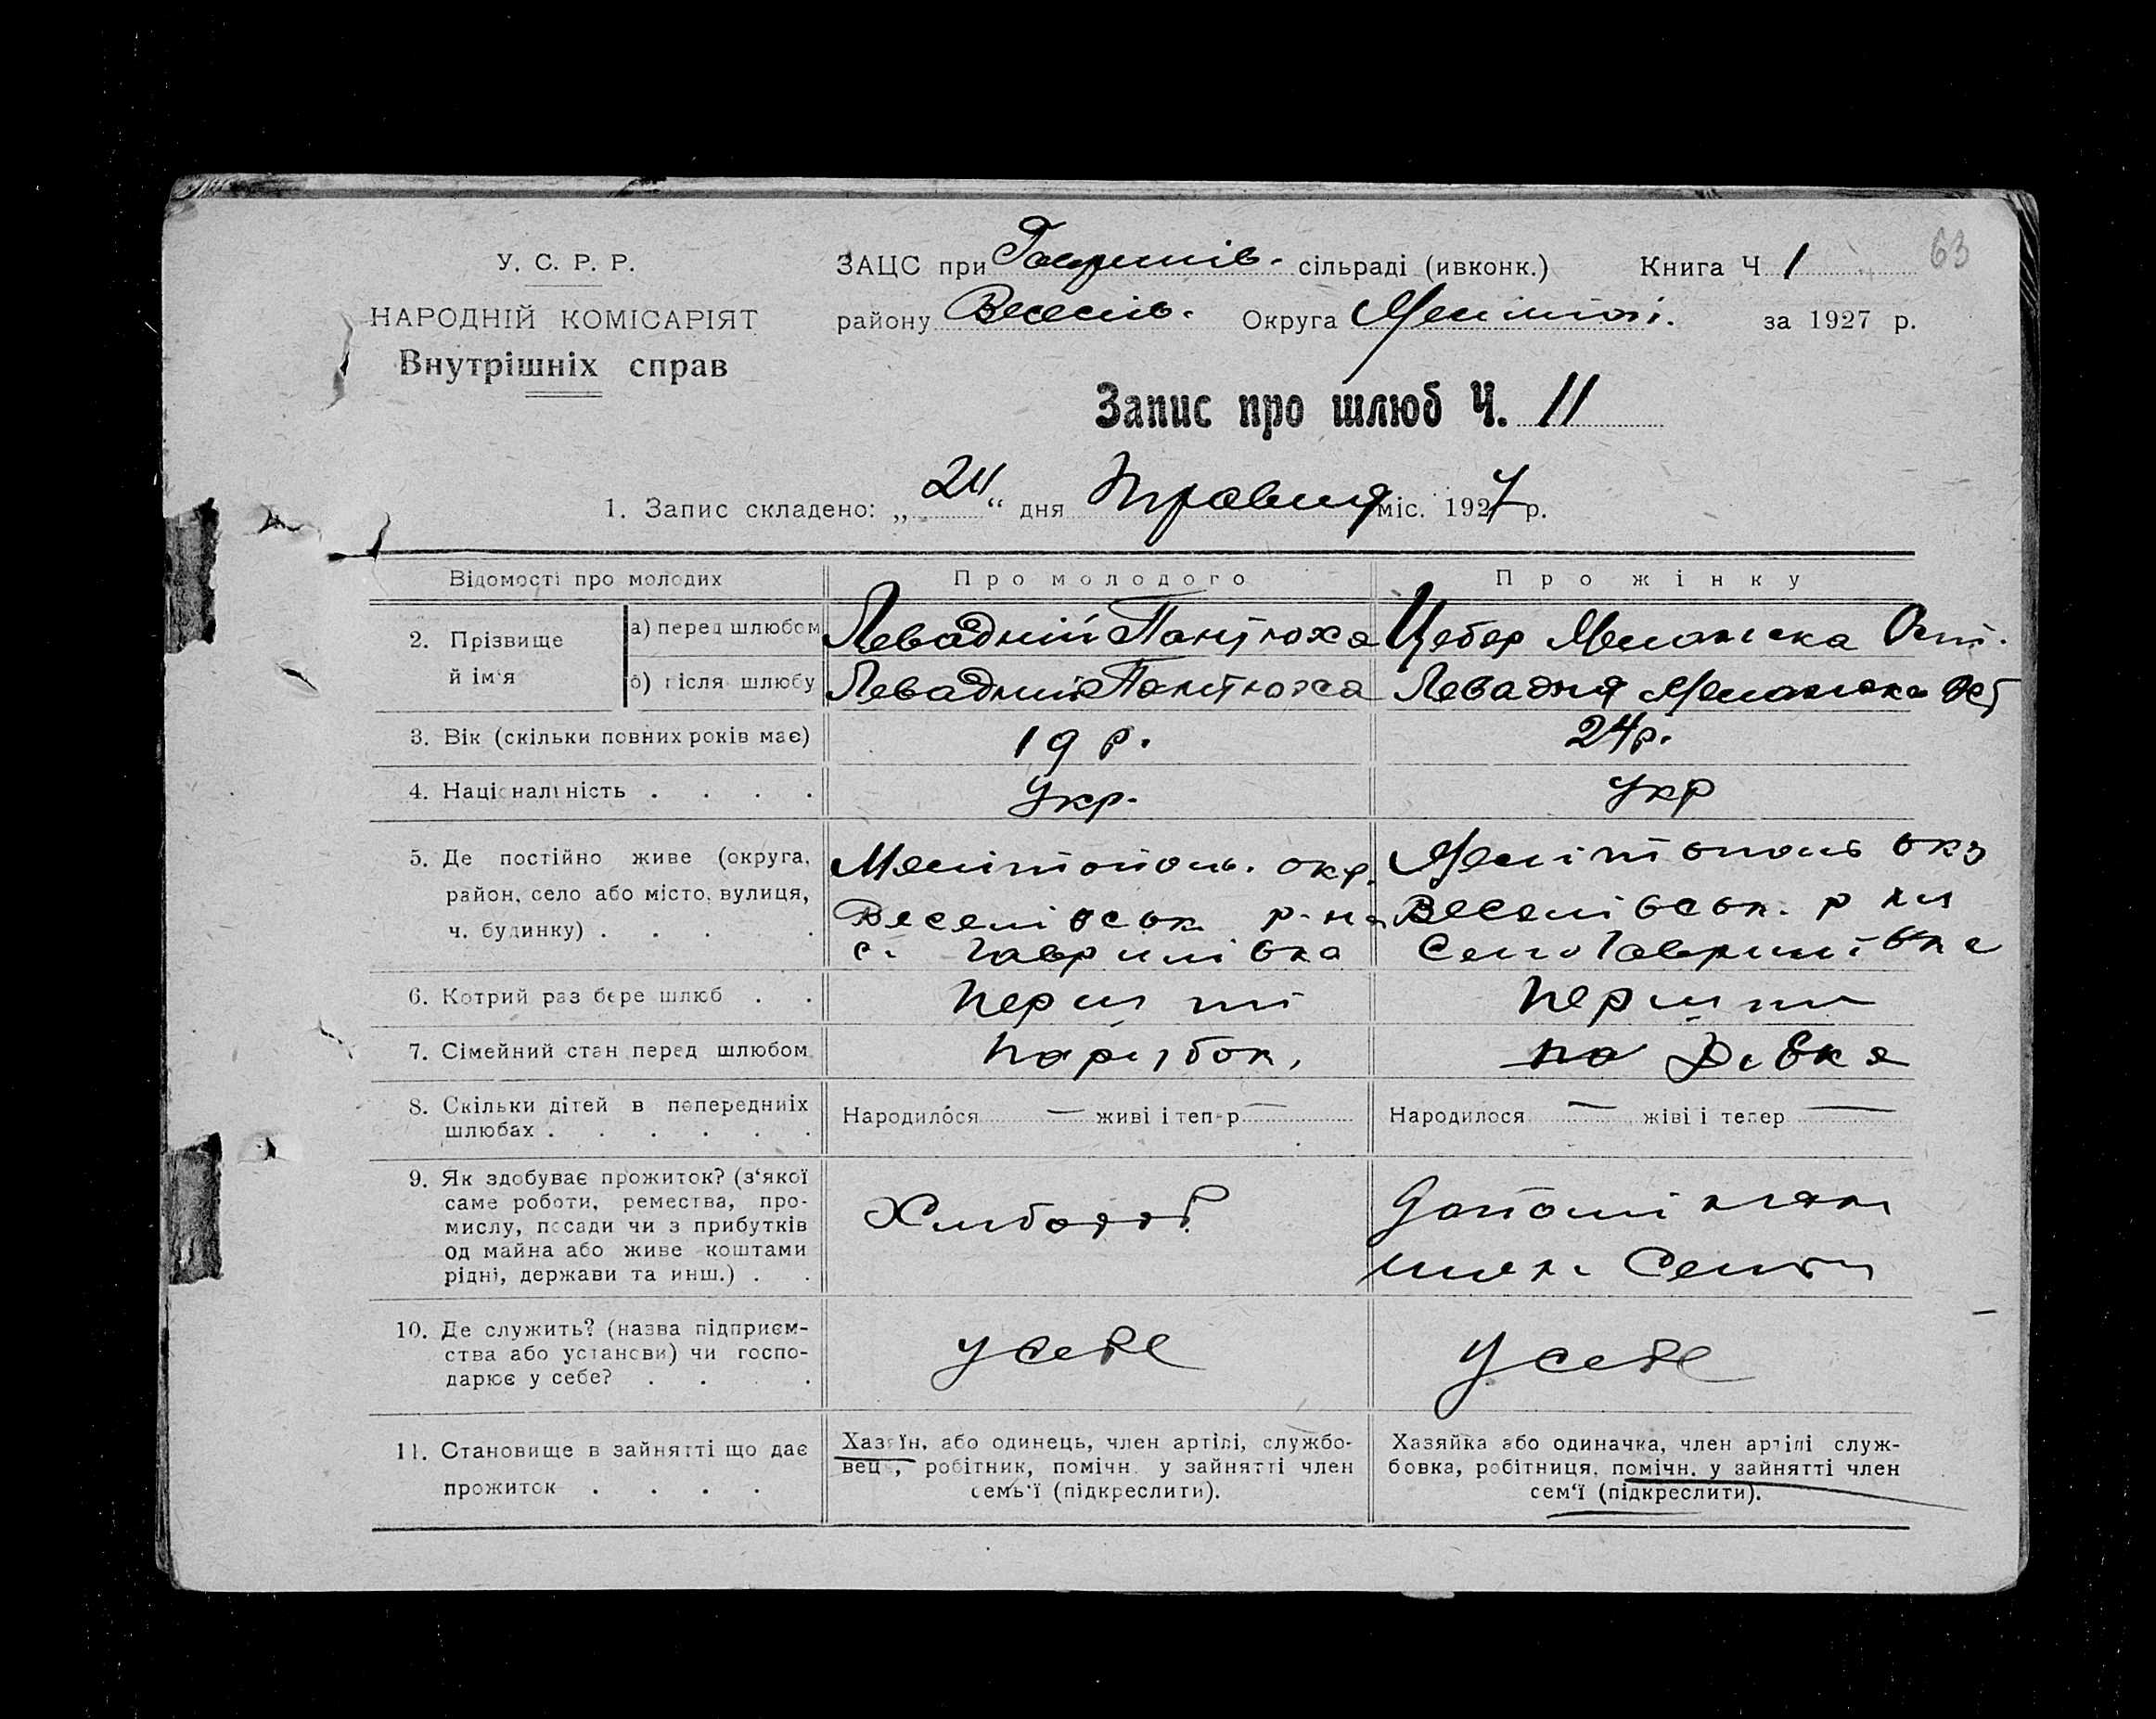 63
У. С. Р. Р.
НАРОДНІЙ КОМІСАРІЯТ
Внутрішніх справ
ЗАЦС при Гаврилів. сільраді (ивконк.) Книга Ч 1
району Веселів. Округа Меліттоі. за 1927 р.
Запис про шлюб Ч. 11
1. Запис складено: „24“ дня Травня міс. 1927 р.
Відомості про молодих Про молодого Про жінку
2. Прізвище й ім'я
а) перед шлюбом Левадній Пантюха Цебер Меланека Ост.
б) після шлюбу Левадний Пантюха Левадня Меланека Ост
3. Вік (скільки повних років має) 19 р. 24 р.
4. Національність . . . . Укр. Укр
5. Де постійно живе (округа, Мелітополь. окр. Мелітополь окр
район, село або місто, вулиця, Веселівськ р-на Веселівськ. р на
ч. будинку) . . . . . с. Гаврилівка Село Гаврилівка
6. Котрий раз бере шлюб . . Перший Перший
7. Сімейний стан перед шлюбом Парубок, Дівка
8. Скільки дітей в попередниіх Народилося — живі і тепер — Народилося — жіві і тепер —
шлюбах . . . . . .
9. Як здобуває прожиток? (з'якої
саме роботи, ремества, про-
мислу, посади чи з прибутків
од майна або живе коштами
рідні, держави та инш.) . .
Хлібороб
член Семьи
10. Де служить? (назва підприєм-
ства або установи) чи госпо-
дарює у себе? . . . .
У себе У себе
11. Становище в зайнятті що дає
прожиток . . . .
Хазяїн, або одинець, член артілі, службо-
вець, робітник, помічн. у зайнятті член
семь'ї (підкреслити).
Хазяйка або одиначка, член артілі служ-
бовка, робітниця, помічн. у зайнятті член
сем'ї (підкреслити).